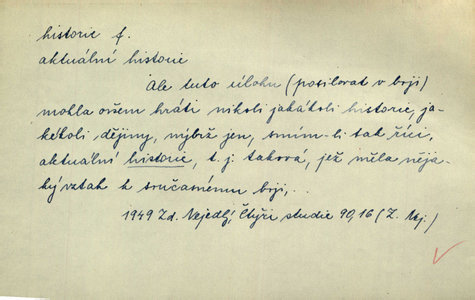 historie f.
aktuální historie
Ale tuto úlohu (posilovat v boji)
mohla ovšem hráti nikoli jakákoli historie, ja-
kékoli dějiny, nýbrž jen, smím-li tak říci,
aktuální historie, t. j. taková, jež měla něja-
ký vztah k současnému boji, ..
1949 Zd. Nejedlý, Čtyři studie 90,16 (Z. Nej.)